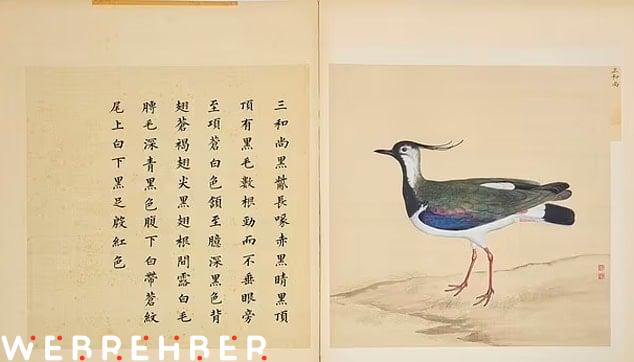 三和尚
三和尚黑長喙赤黑睛黑頂
頂有黑毛數根勁而不垂眼旁
至項蒼白色頷至臆深黑色背
翅蒼褐翅尖黑翅根間露白毛
膊毛深青黑色腹下白帶蒼紋
尾上白下黑足殷紅色
WEBREHBER